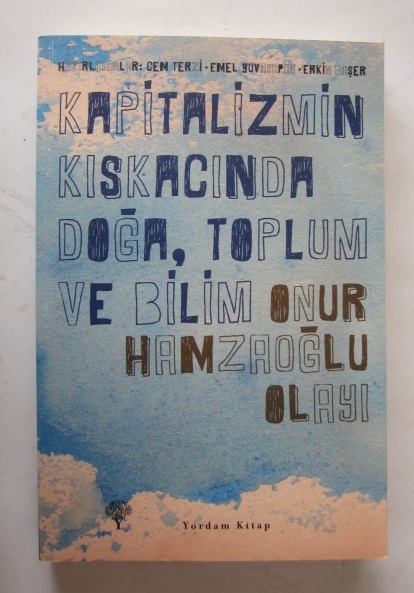 HAZIRLAYANLAR: CEM TERZİ • EMEL YUVAYAPAN • ERKİN BAŞER
KAPİTALİZMİN
KISKACINDA
DOĞA, TOPLUM
VE BİLİM ONUR
HAMZAOĞLU
OLAYI
Y
Yordam Kitap